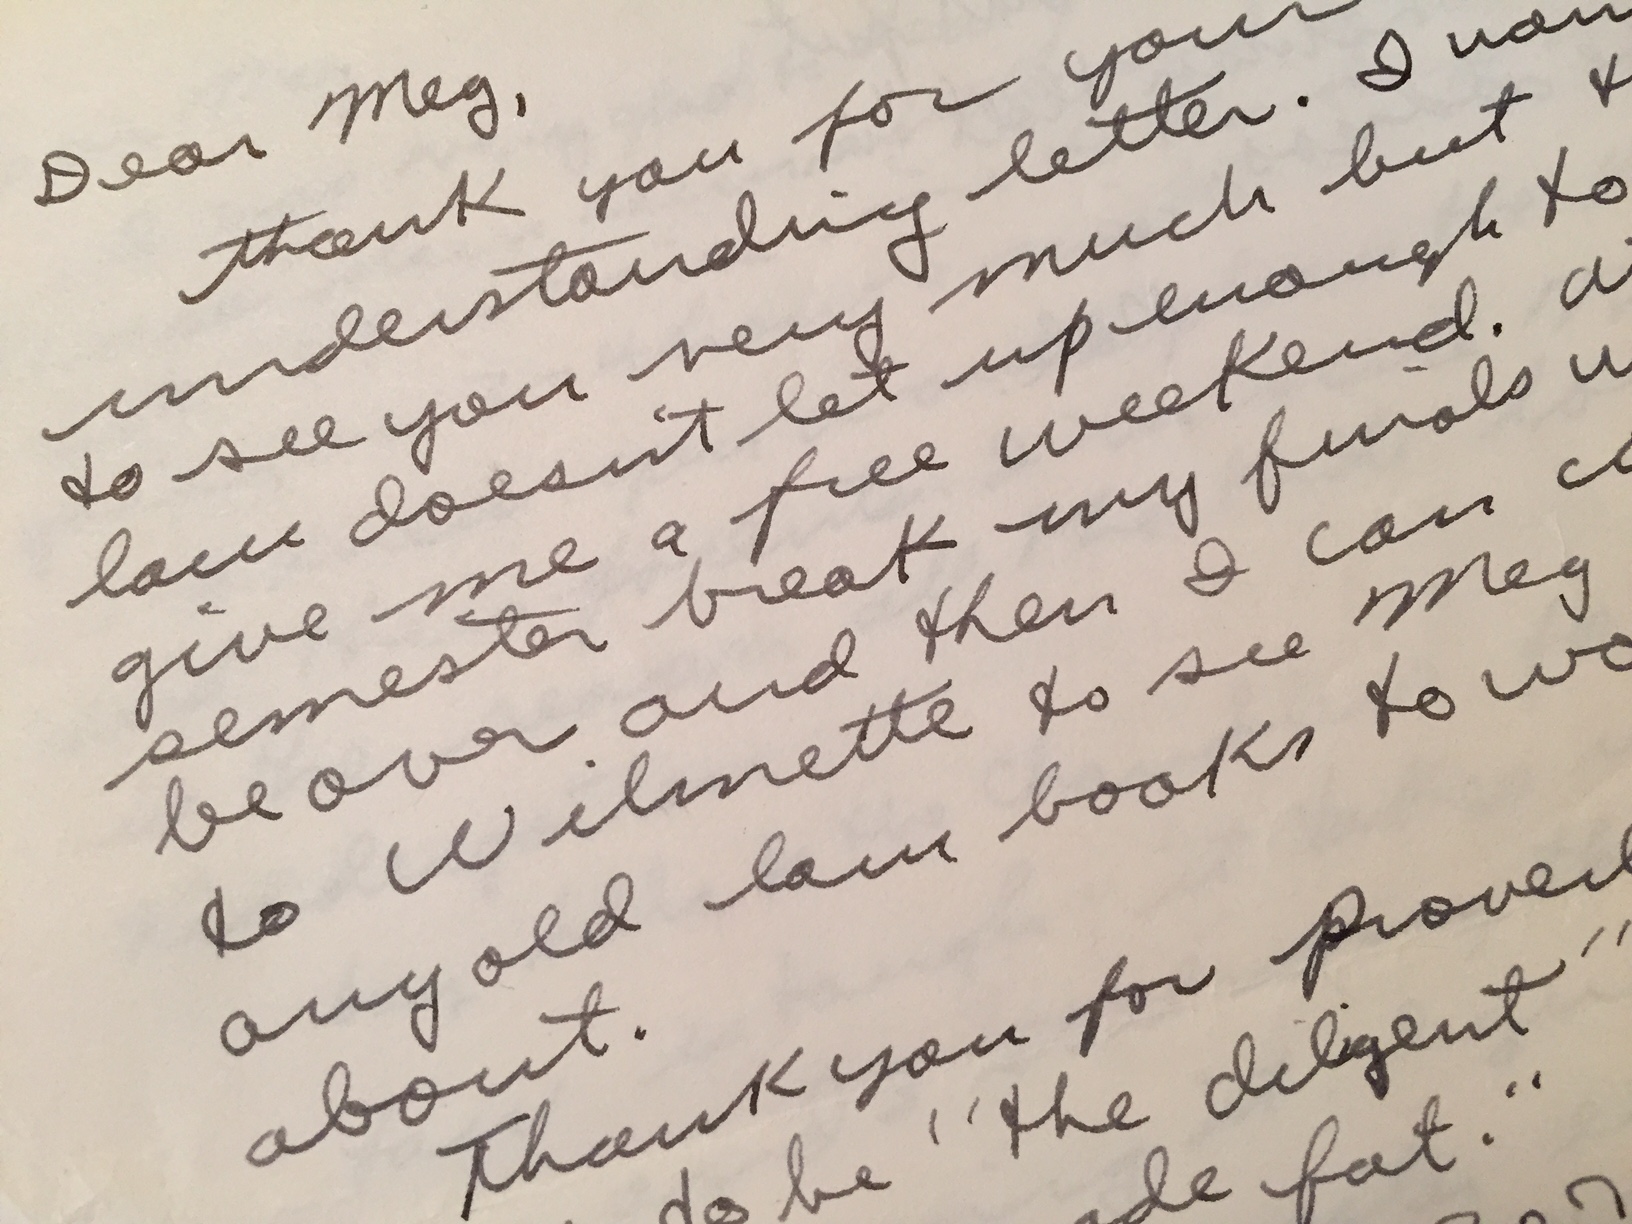 Dear Meg,
thank you for your
understanding letter. I
to see you very much but
law doesn't let up enough to
give me a free weekend.
semester break my finals
be over and then I can
to Wilmette to see Meg
any old law books to
about.
Thank you for
to be "the diligent"
fat."